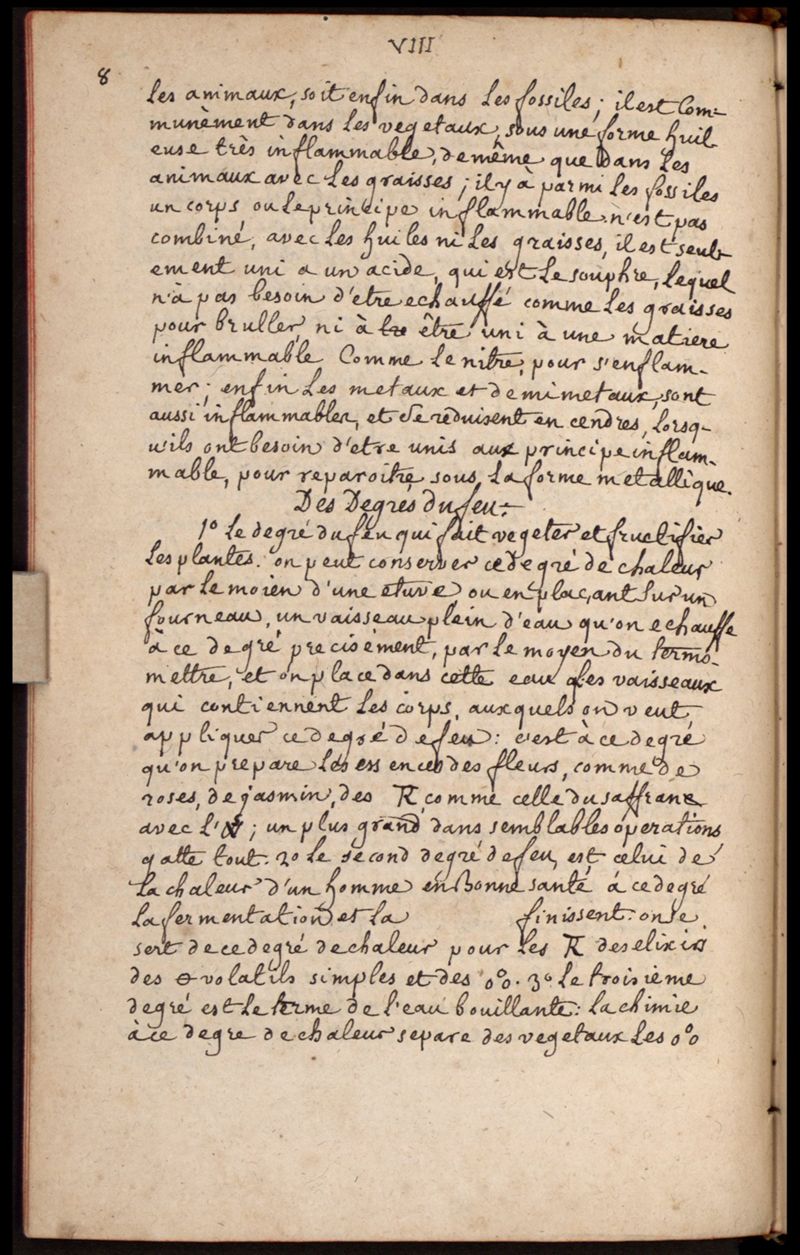 VIII
8
les animaux, soit enfin dans les fossiles; il est Com-
munèment dans les vegetaux, sous une forme huil
euse très inflammable, de même que dans les
animaux avec les graisses; il y à parmi les fossiles
un corps, ou le principe inflammable n'est pas
combiné, avec les huiles ni les graisses, il est seul-
ement uni a un acide, qui est le souphre, lequel
n'à pas besoin d'etre echauffé comme les graisses
pour bruller, ni à être uni à une matiere
inflammable Comme le nitre, pour s'enflam-
mer; enfin les metaux et demimetaux, sont
aussi inflammables, et se reduisent en cendres, lorsq-
u'ils ont besoin d'etre unis aux principe inflam-
mable, pour reparoitre sous la forme metallique.
Des Degrés du feu.
1º Le degré du feu qui fait vegeter et fructifier
les plantes. on peut conserver ce degré de chaleur
par le moien d'une etuve ou en plaçant sur un
fourneau, un vaisseau plein d'eau qu'on echauffe
à ce degré precisément, par le moyen du termo-
mettre, et on place dans cette eau des vaisseaux
qui contiennent les corps, auxquels on veut
appliquer ce degré de feu: c'est à ce degré
qu'on prepare les essences des fleurs, comme de
roses, de jasmin, des comme celle du saffrane
avec l' ; un plus grand dans semblables operations
gatte tout. 2º le second degré de feu, est celui de
la chaleur d'un homme en Bonne santé à ce degré
la fermentation et la finissent: on se
sert de ce degré de chaleur pour les des elixirs
des volatils simples et des 3º Le troisieme
degré est le terme de l'eau bouillante: la chimie
à ce degre de chaleur separe des vegetaux les